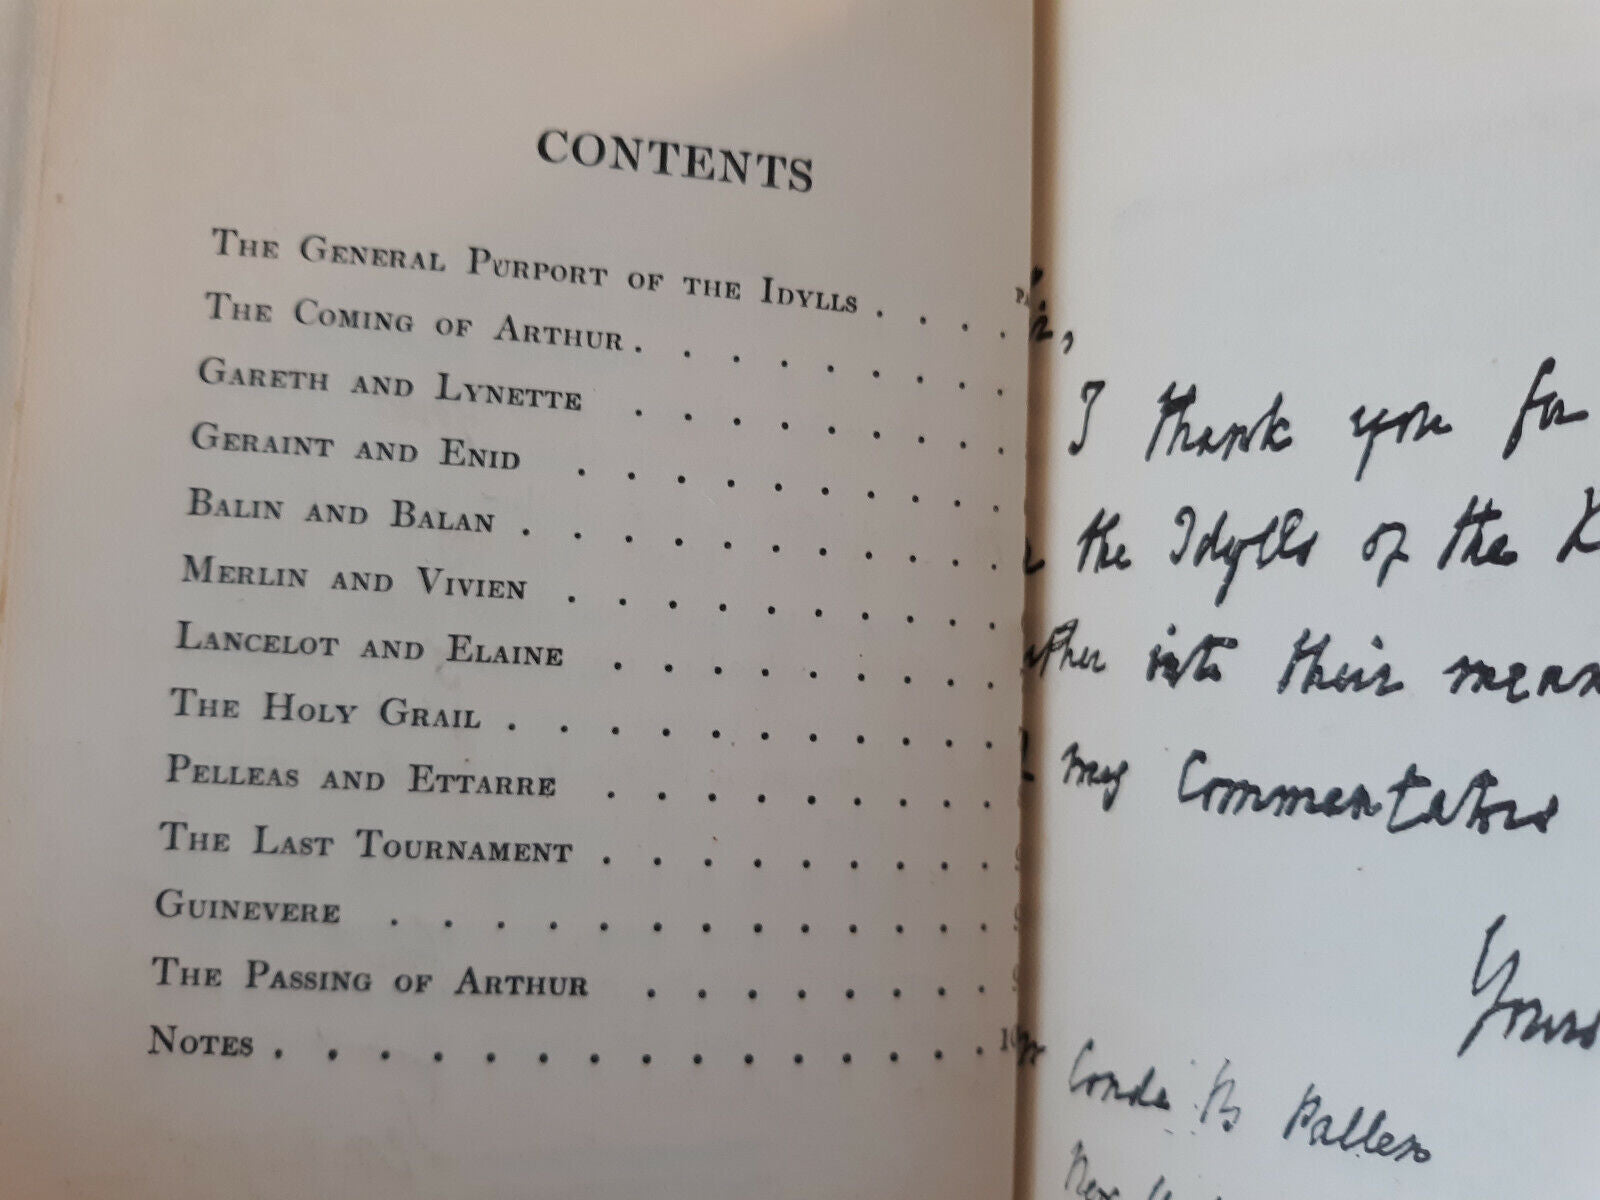 CONTENTS
The General Purport of the Idylls . . . .
The Coming of Arthur . . . . . . . .
Gareth and Lynette . . . . . . . .
Geraint and Enid . . . . . . . . .
Balin and Balan . . . . . . . . . .
Merlin and Vivien . . . . . . . . .
Lancelot and Elaine . . . . . . . .
The Holy Grail . . . . . . . . . .
Pelleas and Ettarre . . . . . . . .
The Last Tournament . . . . . . . .
Guinevere . . . . . . . . . . . .
The Passing of Arthur . . . . . . .
Notes . . . . . . . . . . . . . .
I thank you for
the Idylls of the K
into their mean
my Commentators
Yours
Conde B Pallen